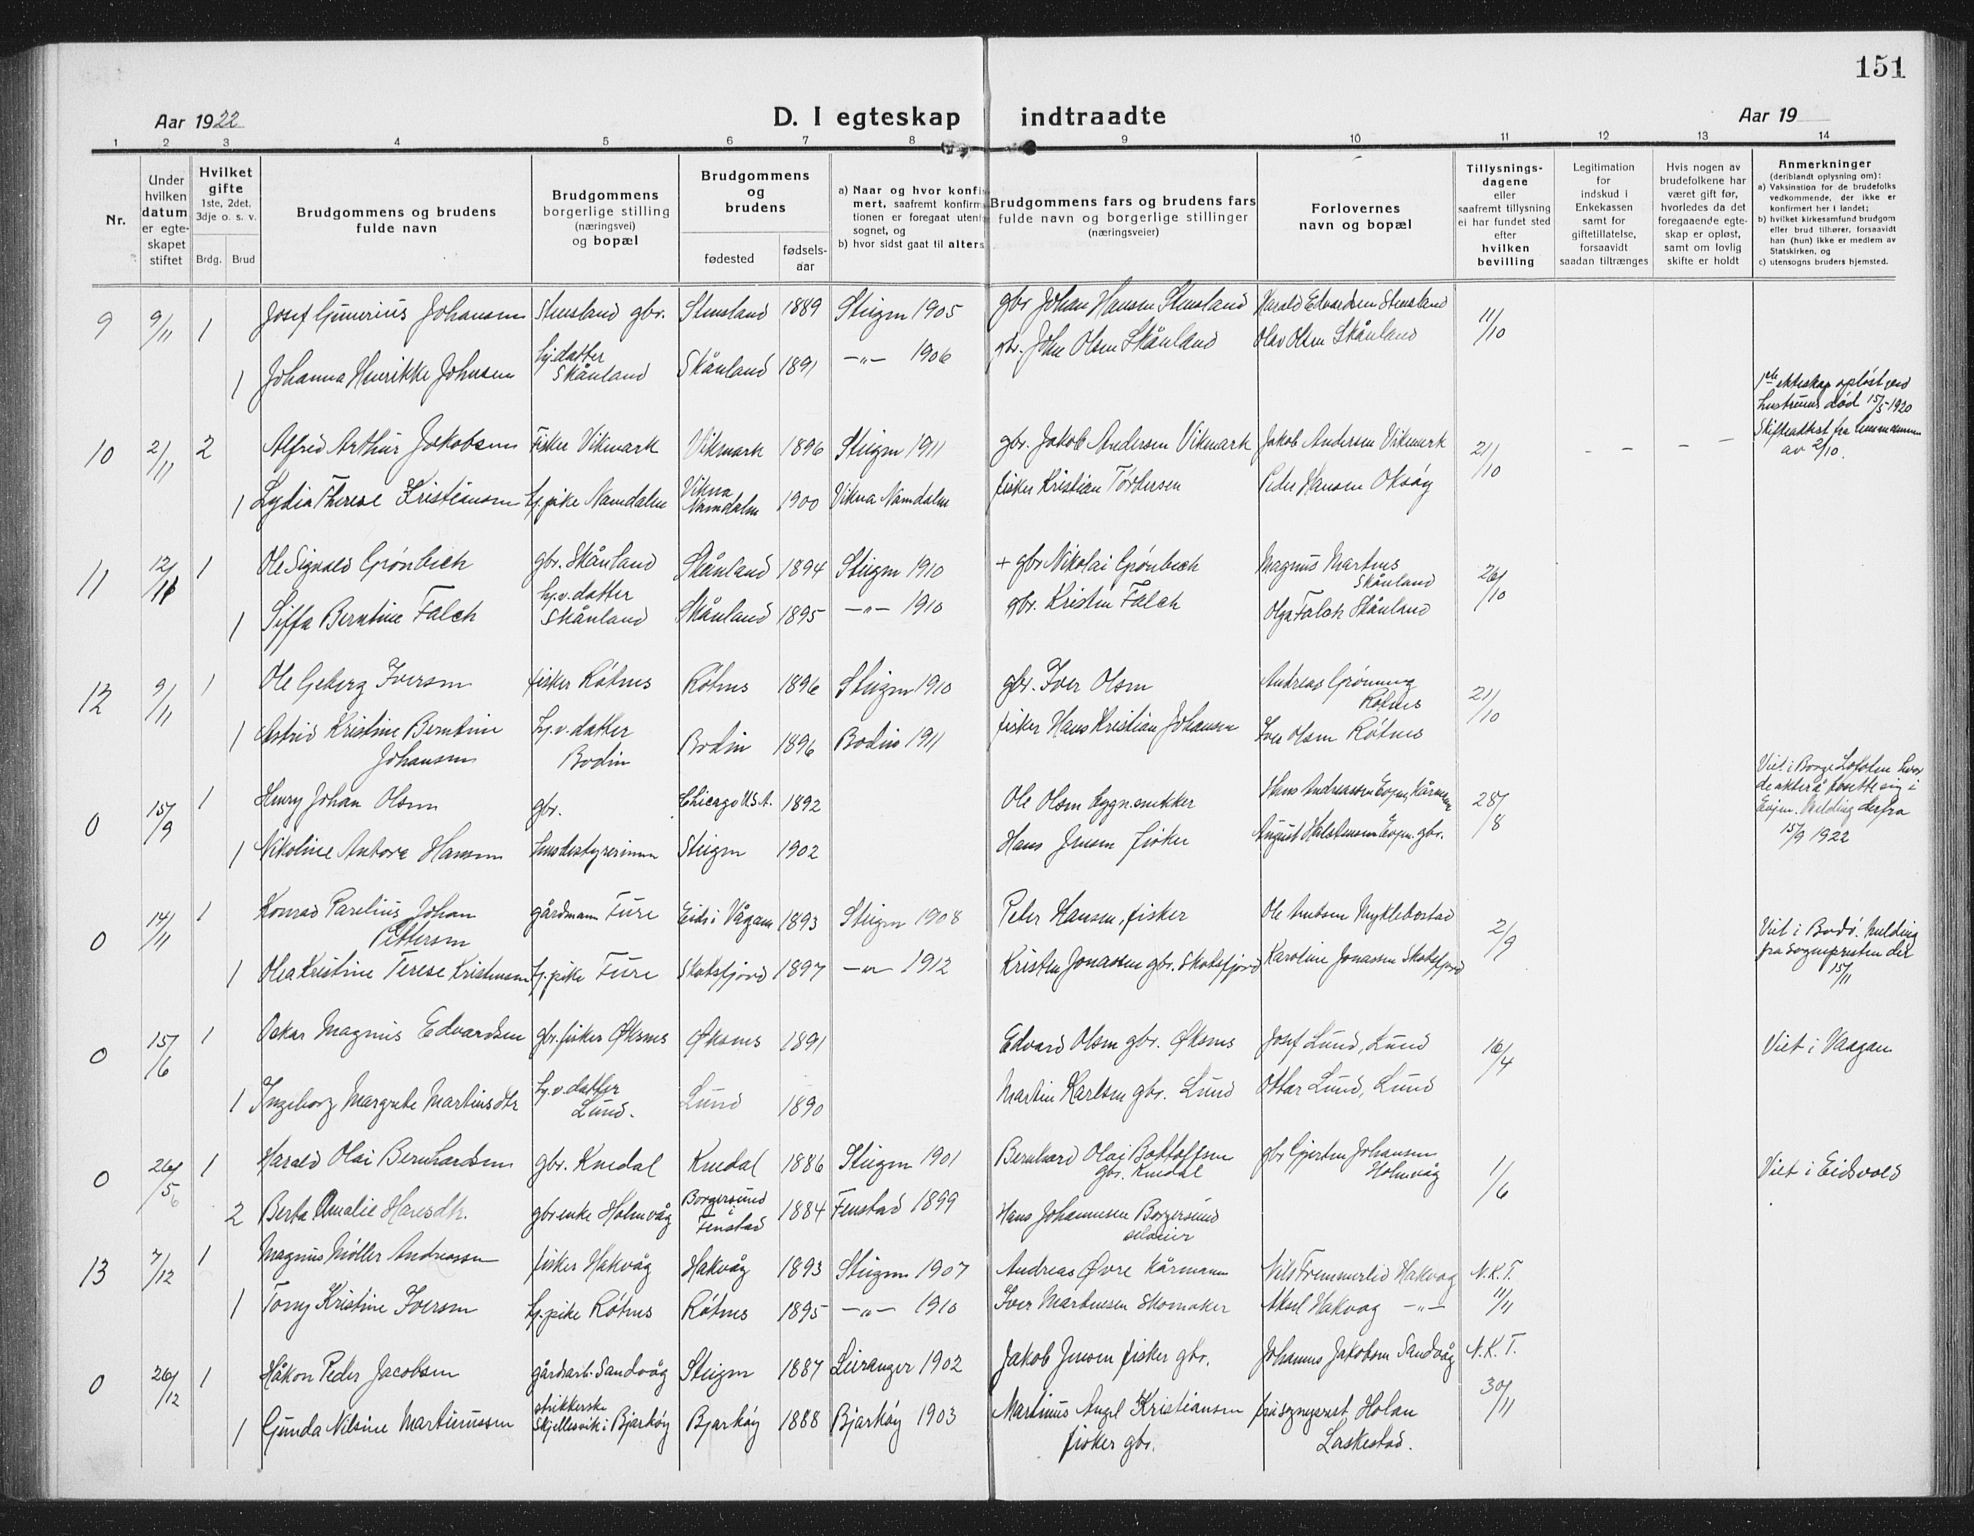 151
Aar 1922
D. I egteskap indtraadte
Aar 19
1 2 3 4 5 6 7 8 9 10 11 12 13 14
Nr.
Under
hvilken
datum
er egte-
skapet
stiftet
Hvilket
gifte
1ste, 2det,
3dje o. s. v.
Brdg. Brud
Brudgommens og brudens
fulde navn
Brudgommens
borgerlige stilling
(næringsvei)
og bopæl
Brudgommens
og
brudens
fødested
fødsels-
aar
a) Naar og hvor konfir
mert, saafremt konfirm
tionen er foregaat utenfo
sognet, og
b) hvor sidst gaat til alters
Brudgommens fars og brudens fars
fulde navn og borgerlige stillinger
(næringsveier)
Forlovernes
navn og bopæl
Tillysnings-
dagene
eller
saafremt tillysning
ei har fundet sted
efter
hvilken
bevilling
Legitimation
for
indskud i
Enkekassen
samt for
giftetillatelse,
forsaavidt
saadan tiltrænges
Hvis nogen av
brudefolkene har
været gift før,
hvorledes da det
foregaaende egte-
skap er opløst,
samt om lovlig
skifte er holdt
Anmerkninger
(deriblandt oplysning om):
a) Vaksination for de brudefolks
vedkommende, der ikke er
konfirmert her i landet;
b) hvilket kirkesamfund brudgom
eller brud tilhører, forsaavidt
han (hun) ikke er medlem av
Statskirken, og
c) utensogns bruders hjemsted.
9 9/11 1 Josef Gunerius Johansen Stensland gbr. Stensland 1889 Steigen 1905 gbr Johan Hansen Stensland Harald Edvardsen Stensland 11/10
1 Johanna Henrikke Johnsen hj. datter Skånland Skånland 1891 -"- 1906 gbr. John Olsen Skånland Olav Olsen Skånland
1ste ekteskap opløst ved
hustruens død 15/5 1920
Skifteattest fra lensmannen
av 2/10.
10 2/11 2 Alfred Arthur Jakobsen Fisker Vikmark Vikmark 1896 Steigen 1911 gbr. Jakob Andersen Vikmark Jakob Andersen Vikmark 21/10 - - - -
1 Lydia Therese Kristiansen hj. pike Namdalen Vikna Namdalen 1900 Vikna Namdalen fisker Kristian Torbersen Peder Hansen Oksøy
11 12/11 1 Ole Sigvald Grønbech gbr. Skånland Skånland 1894 Steigen 1910 + gbr Nikolai Grønbech Magnus Martens Skånland 26/10
1 Siffa Berntine Falch hj. v. datter Skånland Skånland 1895 -"- 1910 gbr. Kristen Falch Olga Falch Skånland
12 9/11 1 Ole Geberg Iversen fisker Røtnes Røtnes 1896 Steigen 1910 gbr. Iver Olsen Andreas Grønning Røtnes 21/10
1 Astrid Kristine Berntine Johansen hj. v. datter Bodin Bodin 1896 Bodin 1911 fisker Hans Kristian Johansen Iver Olsen Røtnes
0 15/9 1 Henry Johan Olsen gbr. Chicago U.S.A. 1892 Ole Olsen bygn.snekker Hans Andreassen Evjen, Kårmann 28/8
1 Nikoline Antora Hansen husbestyrerinne Steigen 1902 Hans Jensen fisker August Evjen gbr.
Viet i Borge Lofoten hvor
de akter å bosette sig i
Evjen. Melding derfra
15/9 1922
0 14/11 1 Konrad Parelius Johan Pettersen gårdmann Fure Eids i Vågan 1893 Steigen 1908 Peter Hansen, fisker Ole Arntsen Myklebostad 2/9
1 Olea Kristine Terese Kristensen hj. pike Fure Skotsfjord 1897 -"- 1912 Kristen Jonassen gbr. Skotsfjord Karoline Jonassen Skotsfjord
Viet i Bodø. Melding
fra sogneprsten der
15/11
0 15/6 1 Oskar Magnus Edvardsen gbr. fisker Øksnes Øksnes 1891 Edvard Olsen gbr. Øksnes Josef Lund, Lund 16/4 Viet i Vaagan
1 Ingeborg Margrete Martinsdtr hj. v. datter Lund. Lund 1890 Martin Karlsen gbr. Lund Ottar Lund, Lund
0 26/5 6 1 Harald Olai Bernhardsen gbr. Knedal Knedal 1886 Steigen 1901 Bernhard Olai Bottolfsen gbr. Knedal gbr Gjertin Johansen Holmvåg 1/6 Viet i Eidsvold
2 Berta Amalie Hansdtr. gbr enke Holmvåg Borgersund i Fenstad 1884 Fenstad 1899 Hans Johannesen Borgersund selveier
13 7/12 1 Magnus Møller Andreassen fisker Hakvåg Hakvåg 1893 Steigen 1907 Andreas Øvre kårmann Nils Fremmerlid Hakvåg N.K.T. 11/11
1 Tomy Kristine Iversen hj. pike Røtnes Røtnes 1895 -"- 1910 Iver Mortensen skomaker Aksel Hakvåg -"-
0 26/12 1 Håkon Peder Jacobsen gårdsarb. Sandvåg Steigen 1887 Leiranger 1902 Jakob Jensen fisker gbr. Johannes Jakobsen Sandvåg N.K.T. 30/11
1 Gunda Nilsine Martinussen strikkerske Skjellesvik i Bjarkøy Bjarkøy 1888 Bjarkøy 1903 Martinus Angel Kristiansen fisker gbr. frå sogneprest Holan Laskestad.